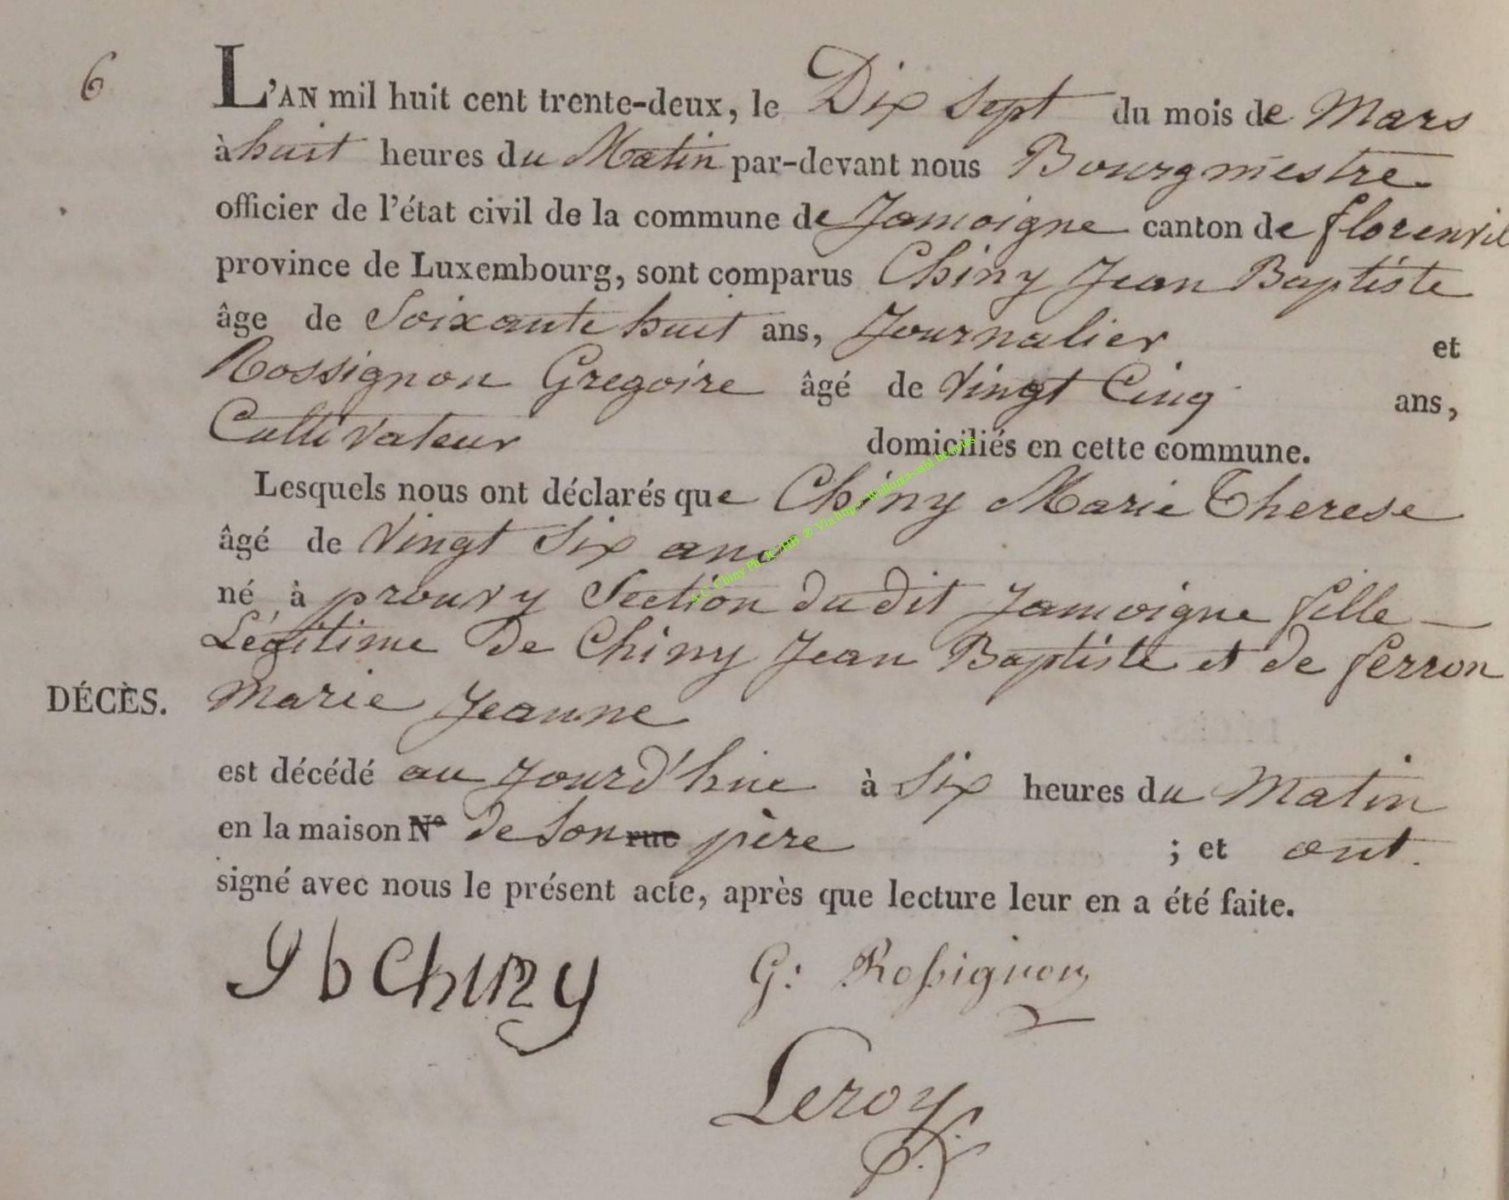 6
L'AN mil huit cent trente-deux, le Dix Sept du mois de Mars
à huit heures du Matin par-devant nous Bourgmestre
officier de l'état civil de la commune de Jamoigne canton de florenvil
province de Luxembourg, sont comparus Chiny Jean Baptiste
âge de Soixante huit ans, Journalier et
Rossignon Gregoire âgé de Vingt Cinq ans,
Cultivateur domiciliés en cette commune.
Lesquels nous ont déclarés que Chiny Marie Therese
âgé de Vingt Six ans
né à prouvy Section du dit Jamoigne fille
Légitime de Chiny Jean Baptiste et de ferron
DÉCÈS. Marie Jeanne
est décédé au jourd'hui à Six heures du Matin
en la maison N° de Son rue père ; et ont.
signé avec nous le présent acte, après que lecture leur en a été faite.
J b Chiny G: Rossignon
Leroy